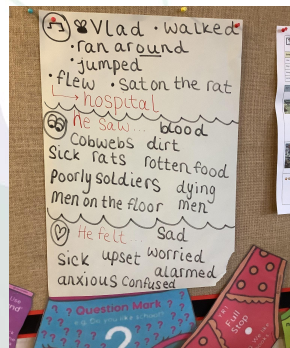 Vlad • walked
• ran around
• jumped
• flew • sat on the rat
hospital
he saw... blood
Cobwebs dirt
Sick rats rotten food
Poorly soldiers dying
men on the floor men
He felt... Sad
sick upset worried
alarmed
anxious confused
Question Mark
e.g. Do you like school?
?
Full
Stop